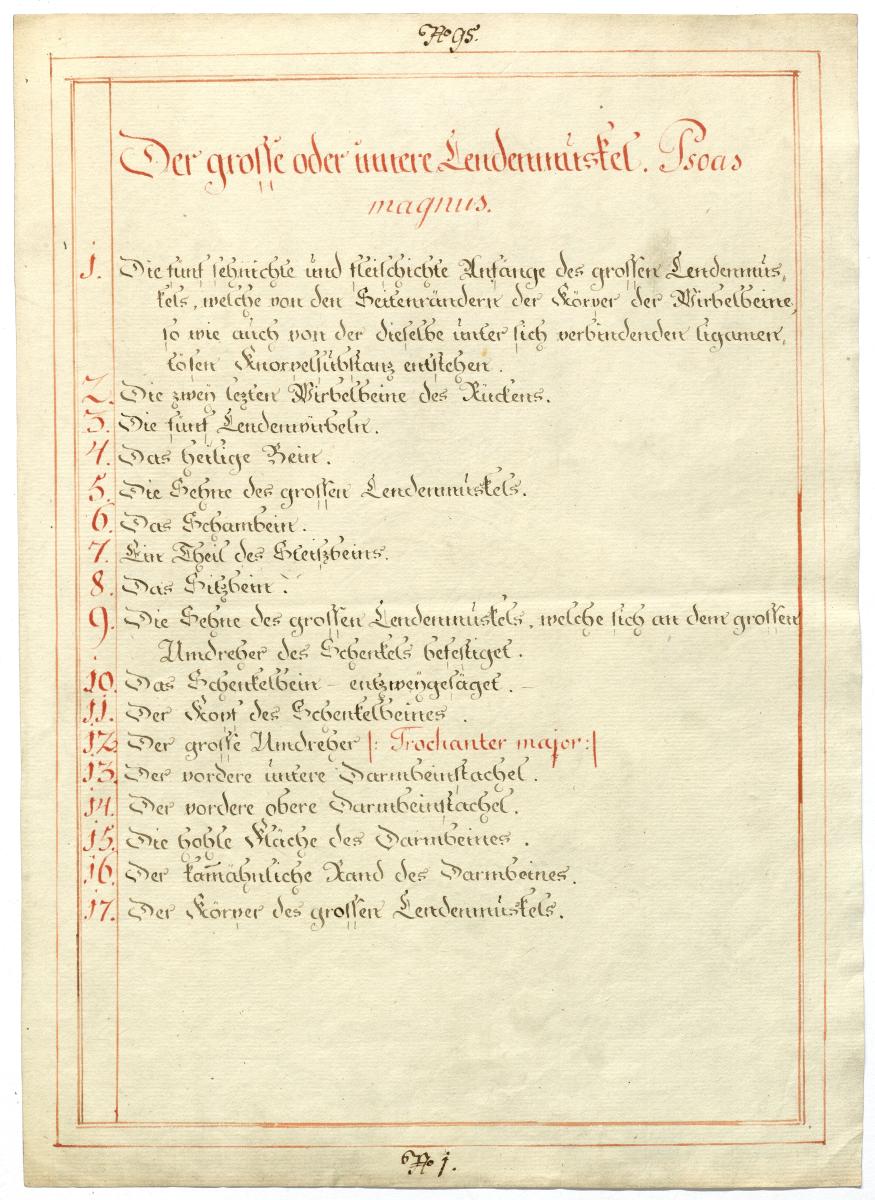 No 95.
Der grosse oder innere Lendenmuskel. Psoas
magnus.
1. Die fünf sehnichte und fleischichte Anfänge des grossen Lendenmus-
kels, welche von den Seitenrändern der Körper der Wirbelbeine,
so wie auch von der dieselbe unter sich verbindenden ligamen-
tösen Knorpelsubstanz entstehen.
2. Die zwey lezten Wirbelbeine des Rückens.
3. Die fünf Lendenwirbeln.
4. Das heilige Bein.
5. Die Sehne des grossen Lendenmuskels.
6. Das Schambein.
7. Ein Theil des Steiszbeins.
8. Das Sitzbein.
9. Die Sehne des grossen Lendenmuskels, welche sich an dem grossen
Umdreher des Schenkels befestiget.
10. Das Schenkelbein – entzweygesäget. –
11. Der Kopf des Schenkelbeines.
12. Der grosse Umdreher |: Trochanter major :|
13. Der vordere untere Darmbeinstachel.
14. Der vordere obere Darmbeinstachel.
15. Die hohle Fläche des Darmbeines.
16. Der kam̅ähnliche Rand des Darmbeines.
17. Der Körper des grossen Lendenmuskels.
No 1.